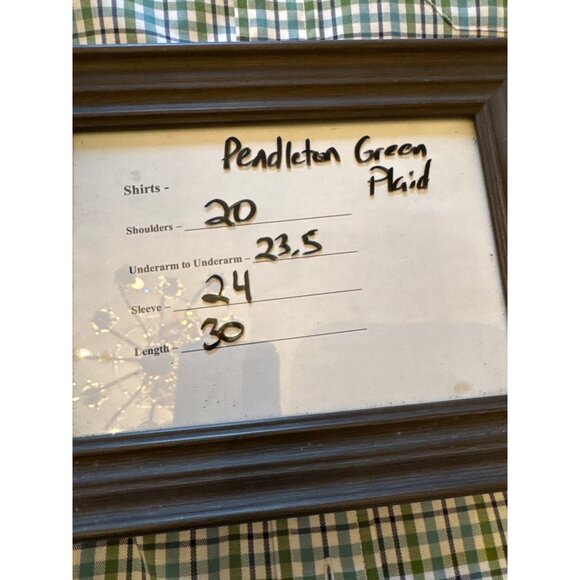 Pendleton Green
Plaid
Shirts -
Shoulders - 20
Underarm to Underarm - 23.5
Sleeve - 24
Length - 30